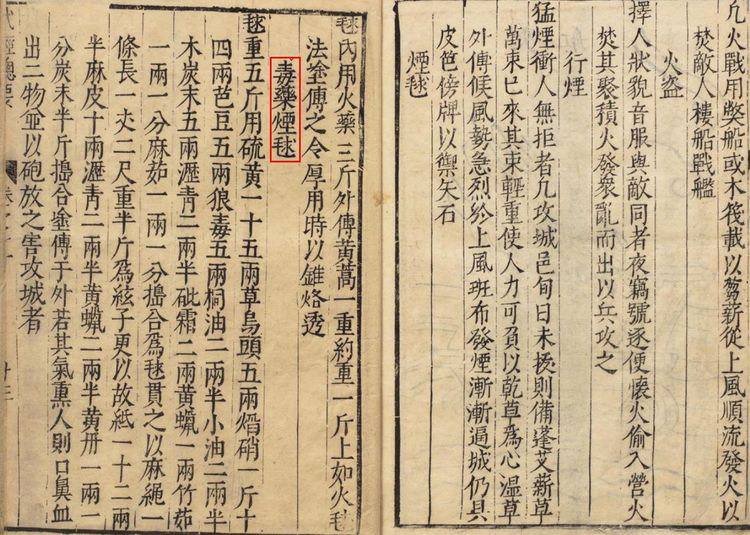 凢火戰用獘船或木筏載以芻薪從上風順流發火以
焚敵人樓船戰艦
火盜
擇人狀貌音服與敵同者夜竊號逐便懷火偷入營火
焚其聚積火發衆亂而出以兵攻之
行煙
猛煙衝人無拒者凢攻城邑旬日未抜則備蓬艾薪草
萬束巳來其束輕重使人力可負以乾草爲心濕草
外傅候風勢急烈於上風班布發煙漸漸逼城仍具
皮笆傍牌以禦矢石
煙毬
毬內用火藥三斤外傅黃蒿一重約重一斤上如火毬
法塗傅之令厚用時以錐烙透
毒藥煙毬
毬重五斤用硫黃一十五兩草烏頭五兩熖硝一斤十
四兩芭豆五兩狼毒五兩桐油二兩半小油二兩半
木炭末五兩瀝青二兩半砒霜二兩黃蠟一兩竹茹
一兩一分麻茹一兩一分搗合爲毬貫之以麻繩一
條長一丈二尺重半斤爲絃子更以故紙一十二兩
半麻皮十兩瀝青二兩半黃蠟二兩半黃丹一兩一
分炭末半斤搗合塗傅于外若其氣熏人則口鼻血
出二物並以砲放之害攻城者
武經總要